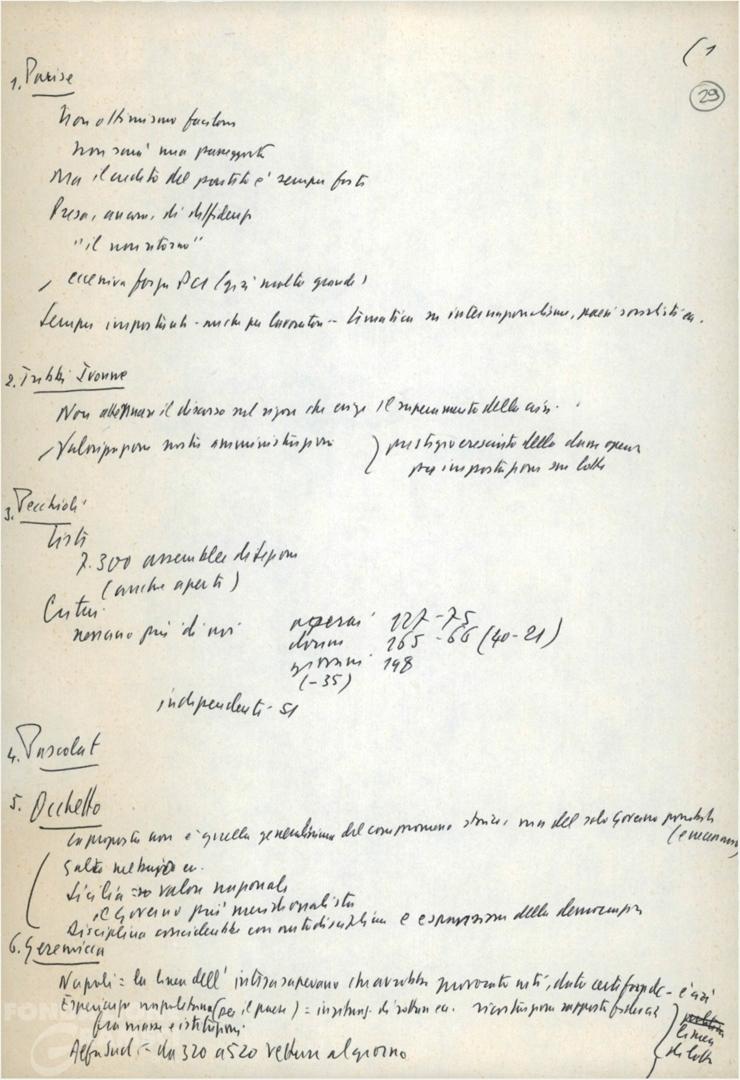 (1
29
1. Parise
Non ottimismo facilone
Non sarà una passeggiata
Ma il credito del partito è sempre forte
Presa, ancora, di diffidenze
"il non ritorno"
eccessiva forza PCI (già molto grande)
Sempre impostate - anche per lavoratori - tematica su internazionalismo, paesi socialisti ecc.
2. Trebbi Ivonne
Non attenuare il discorso sul rigore che esige il superamento della crisi.
Valorizzazione nostre amministrazioni } prestigio cresciuto della classe operaia
per impostazione sue lotte
3. Pecchioli
Liste
7.300 assemblee di sezione
(anche aperte)
Criteri
nessuno più di noi
operai 127 - 75
donne 165 - 66 (40-21)
giovani 198
(-35)
indipendenti - 51
4. Pascolat
5. Occhetto
La proposta non è quella generalissima del compromesso storico, ma del solo Governo possibile
(e necessario)
Salto nel buio ecc.
Sicilia = valore nazionale
il Governo più meridionalista
Disciplina coincidente con autodisciplina e espansione della democrazia
6. Geremicca
Napoli = la linea dell'intesa sapevamo che avrebbe provocato
Esperienza napoletana (per il paese) =
fra masse e istituzioni.
linea
di lotta
AlfaSud = da 320 a 520 vetture al giorno
FON